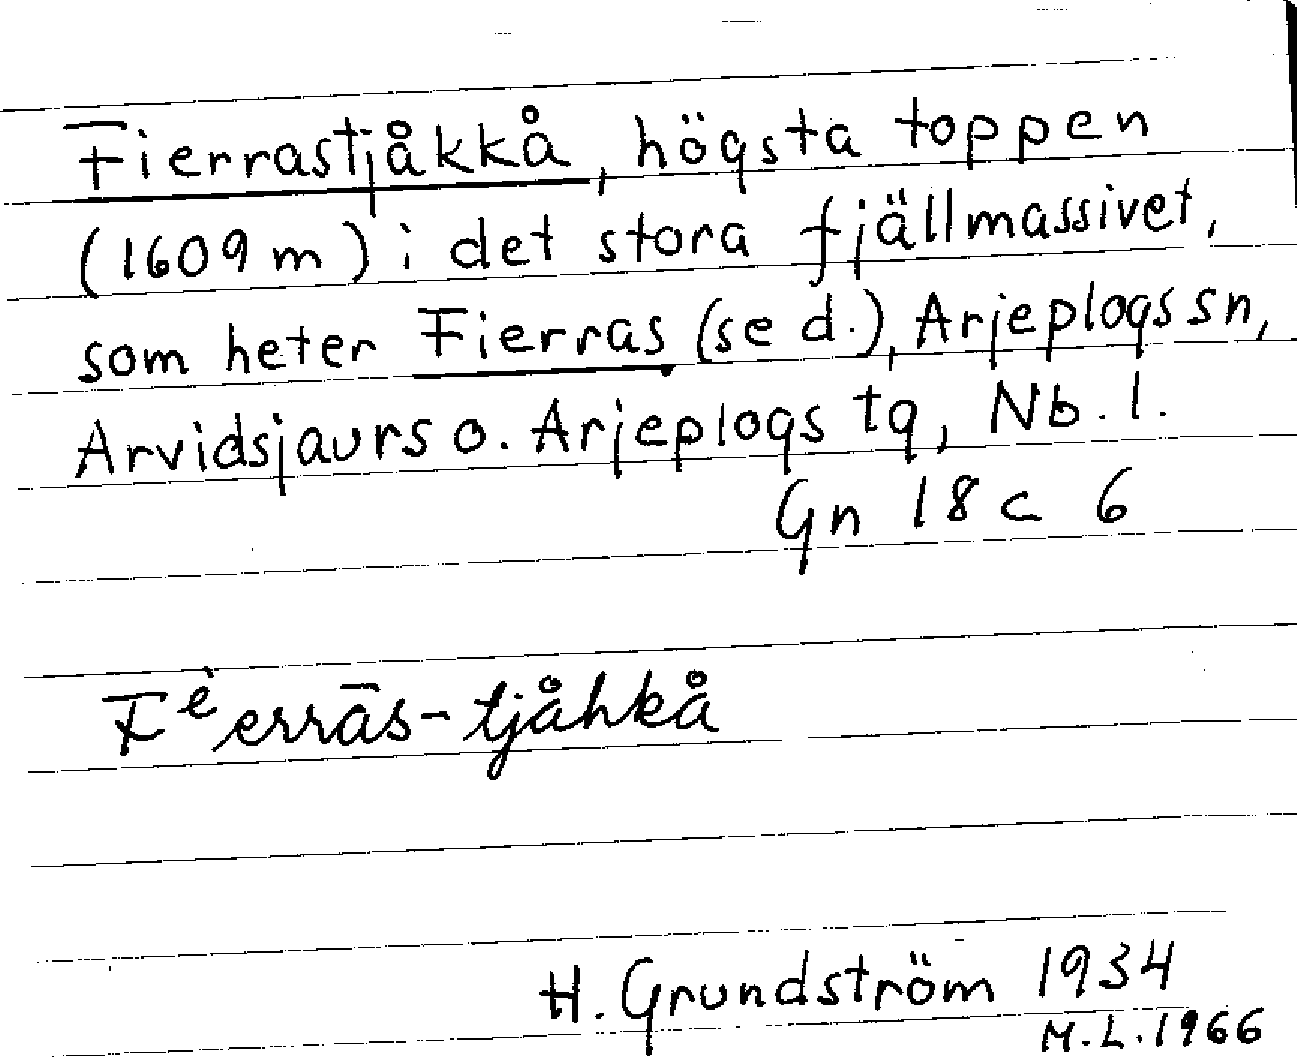 Fierrastjåkkå, högsta toppen
(1609 m) i det stora fjällmassivet,
som heter Fierras (se d.), Arjeplogs sn,
Arvidsjaurs o. Arjeplogs tg, Nb. l.
Gn 18 c 6
Fėerrās-tjåhkå
H. Grundström 1934
M.L. 1966